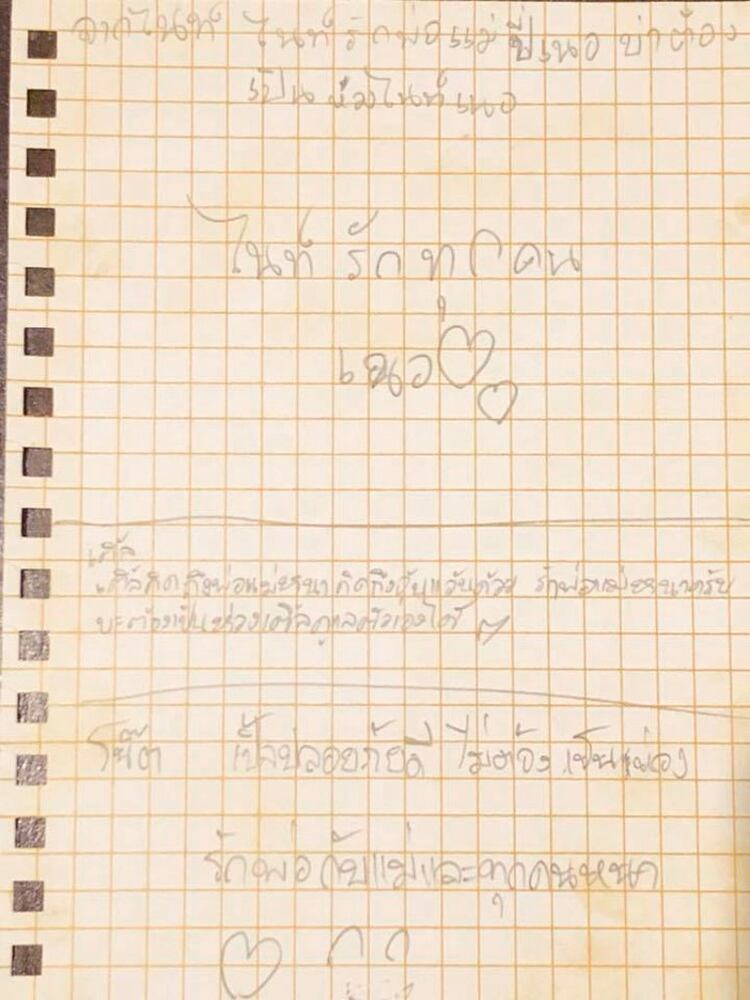 จากไนท์ ไนท์รักพ่อแม่พี่เนอ บ่าต้อง
เป็นห่วงไนท์เนอ
ไนท์ รักทุกคน
เนอ
เติ้ล
เติ้ลคิดถึงพ่อแม่ คิดถึง ด้วย รักพ่อแม่
บะต้องเป็นห่วงเติ้ลดูแลตัวเองได้
โน๊ต ปลอดภัยดี ไม่ต้องเป็นห่วง
รักพ่อกับแม่และทุกคนหนา